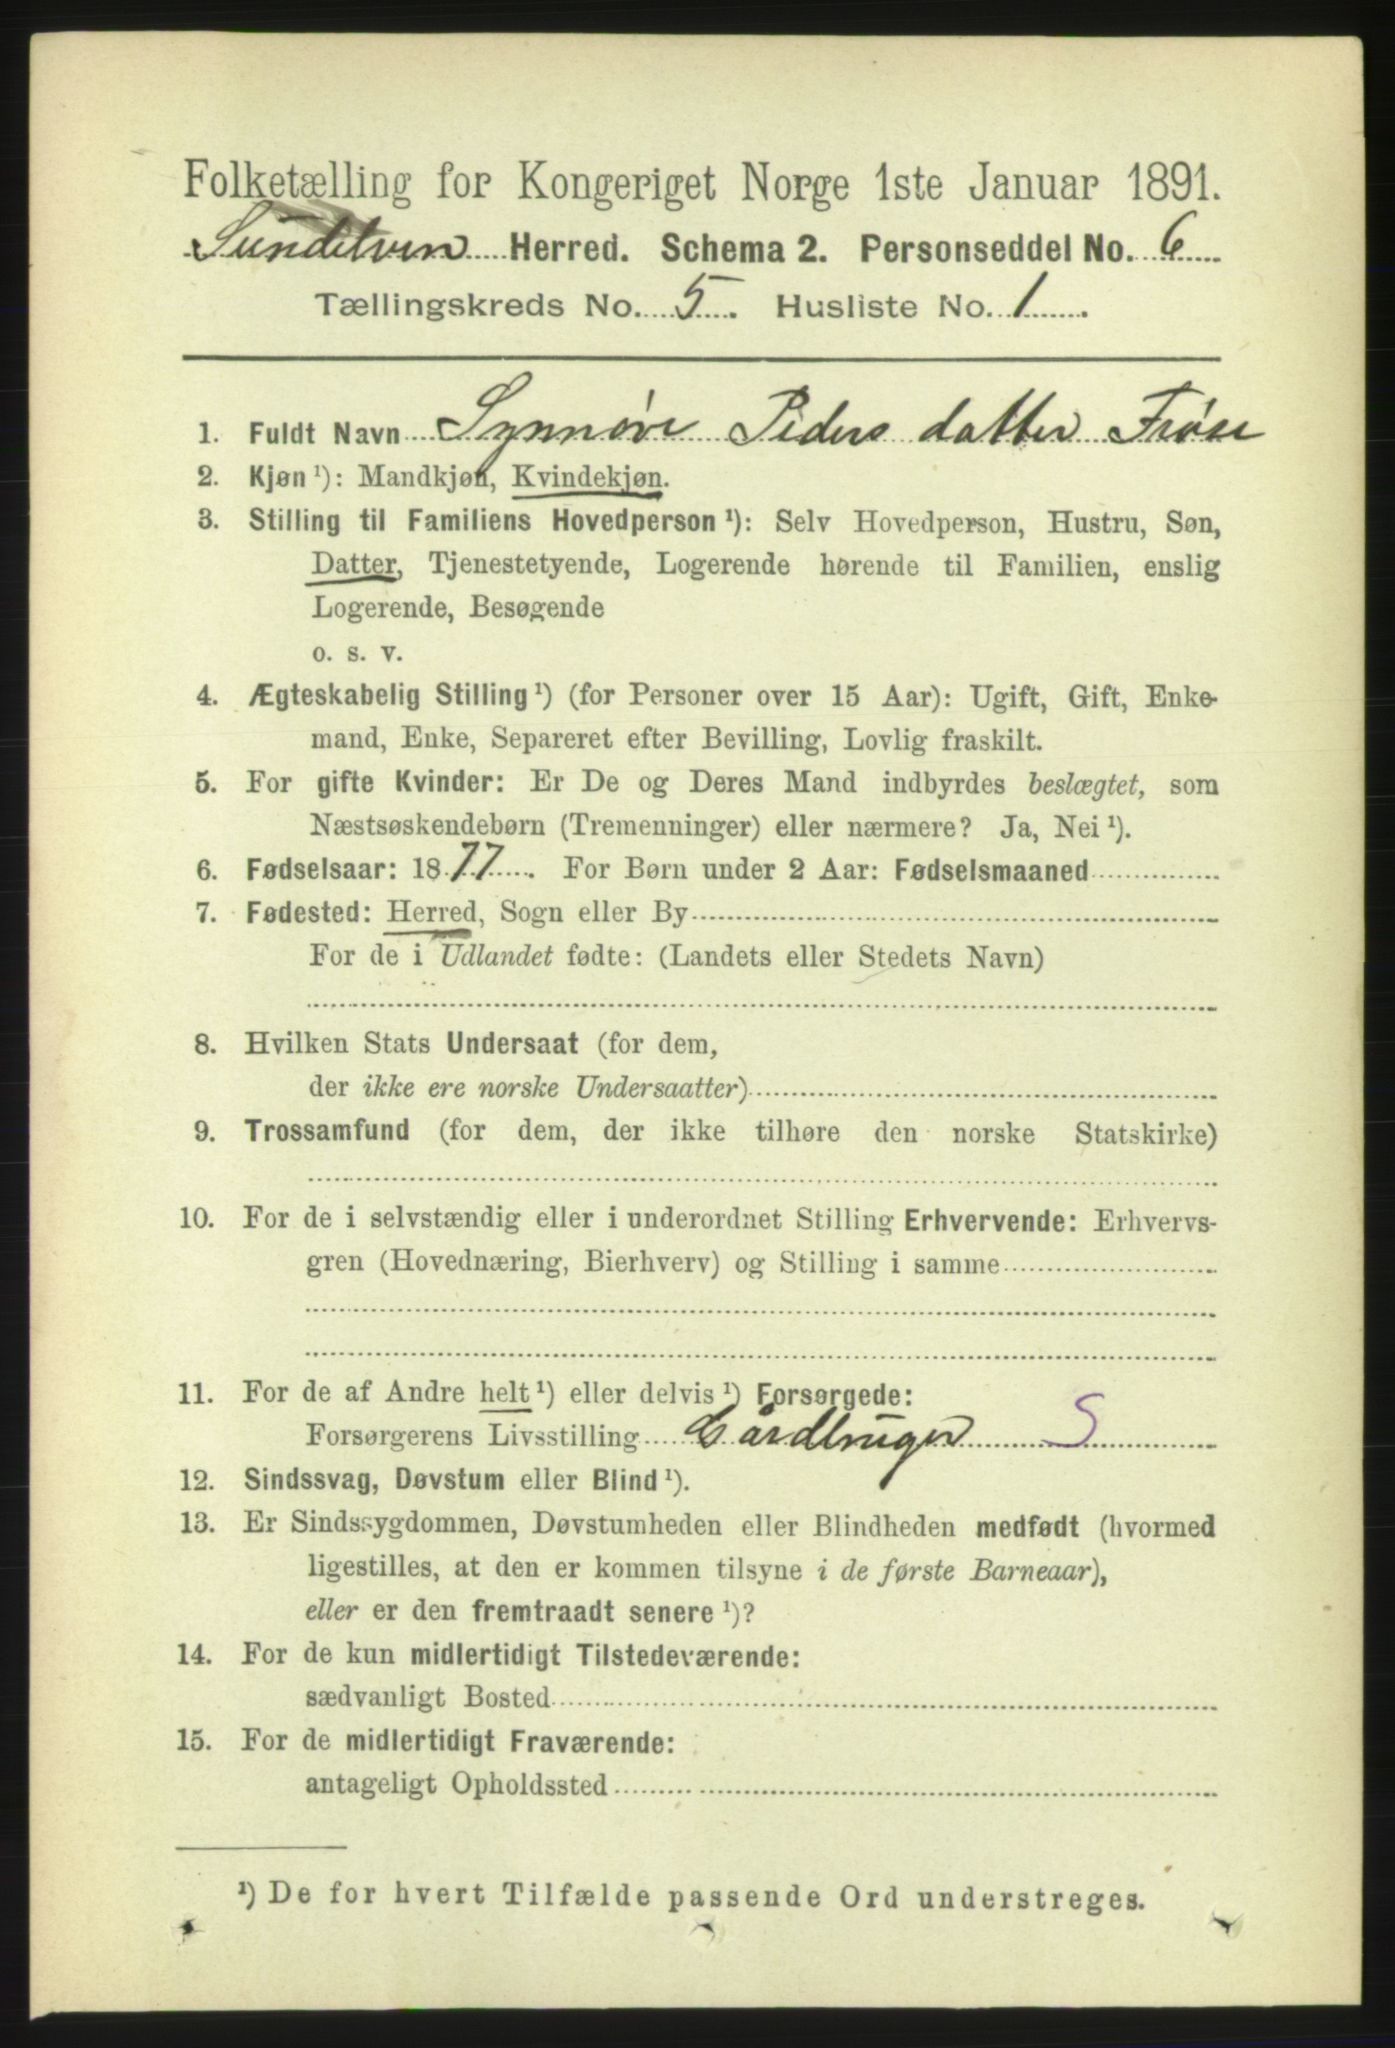 Folketælling for Kongeriget Norge 1ste Januar 1891.
Sundelven Herred. Schema 2. Personseddel No. 6
Tællingskreds No. 5. Husliste No. 1.
1. Fuldt Navn Synnøve Peders datter Frøse
2. Kjøn ¹): Mandkjøn, Kvindekjøn.
3. Stilling til Familiens Hovedperson ¹): Selv Hovedperson, Hustru, Søn,
Datter, Tjenestetyende, Logerende hørende til Familien, enslig
Logerende, Besøgende
o. s. v.
4. Ægteskabelig Stilling ¹) (for Personer over 15 Aar): Ugift, Gift, Enke-
mand, Enke, Separeret efter Bevilling, Lovlig fraskilt.
5. For gifte Kvinder: Er De og Deres Mand indbyrdes beslægtet, som
Næstsøskendebørn (Tremenninger) eller nærmere? Ja, Nei ¹).
6. Fødselsaar: 1877. For Børn under 2 Aar: Fødselsmaaned
7. Fødested: Herred, Sogn eller By
For de i Udlandet fødte: (Landets eller Stedets Navn)
8. Hvilken Stats Undersaat (for dem,
der ikke ere norske Undersaatter)
9. Trossamfund (for dem, der ikke tilhøre den norske Statskirke)
10. For de i selvstændig eller i underordnet Stilling Erhvervende: Erhvervs-
gren (Hovednæring, Bierhverv) og Stilling i samme
11. For de af Andre helt ¹) eller delvis ¹) Forsørgede:
Forsørgerens Livsstilling Gårdbruger S
12. Sindssvag, Døvstum eller Blind ¹).
13. Er Sindssygdommen, Døvstumheden eller Blindheden medfødt (hvormed
ligestilles, at den er kommen tilsyne i de første Barneaar),
eller er den fremtraadt senere ¹)?
14. For de kun midlertidigt Tilstedeværende:
sædvanligt Bosted
15. For de midlertidigt Fraværende:
antageligt Opholdssted
¹) De for hvert Tilfælde passende Ord understreges.